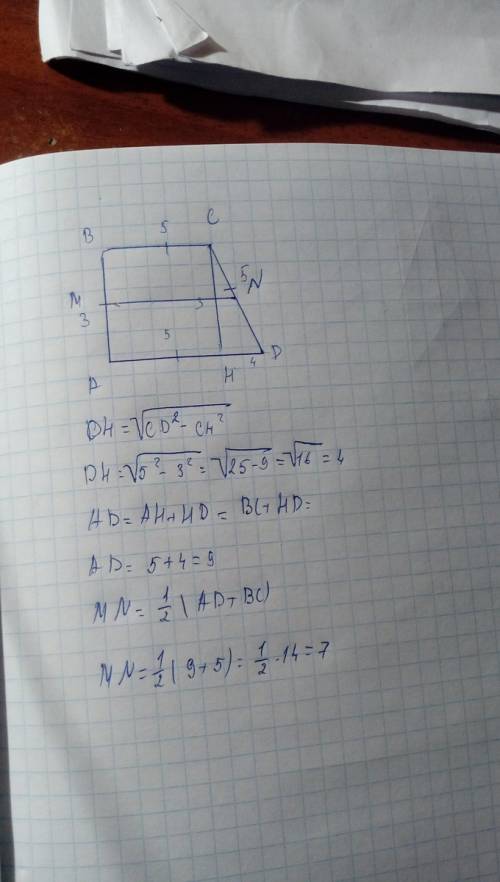 5
B
C
5
N
M
3
3
5
A
H
4
D
DH = √CD² - CH²
DH = √5² - 3² = √25 - 9 = √16 = 4
AD = AH + HD = BC + HD =
AD = 5 + 4 = 9
MN = 1/2 (AD + BC)
MN = 1/2 (9 + 5) = 1/2 · 14 = 7